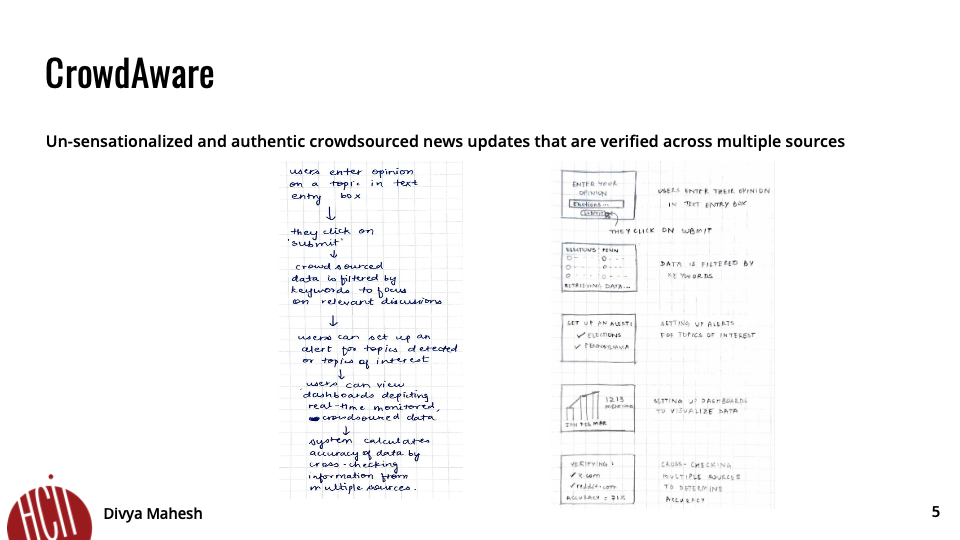 CrowdAware
Un-sensationalized and authentic crowdsourced news updates that are verified across multiple sources
users enter opinion
on a topic in text
entry box
they click on
'submit'
crowdsourced
data is filtered by
keywords to focus
on relevant discussions
users can set up an
alert for topics detected
or topics of interest
users can view
dashboards depicting
real-time monitored,
crowdsourced data
system calculates
accuracy of data by
cross-checking
information from
multiple sources.
ENTER YOUR
OPINION
Elections...
Submit
USERS ENTER THEIR OPINION
IN TEXT ENTRY BOX
THEY CLICK ON SUBMIT
ELECTIONS PENN
RETRIEVING DATA...
DATA IS FILTERED BY
KEYWORDS
SET UP AN ALERT:
✓ ELECTIONS
✓ PENNSYLVANIA
SETTING UP ALERTS
FOR TOPICS OF INTEREST
1213
JAN FEB MAR
SETTING UP DASHBOARDS
TO VISUALIZE DATA
VERIFYING:
✓ X.com
✓ reddit.com
ACCURACY = 71%
CROSS-CHECKING
MULTIPLE SOURCES
TO DETERMINE
ACCURACY
HCII
Divya Mahesh
5